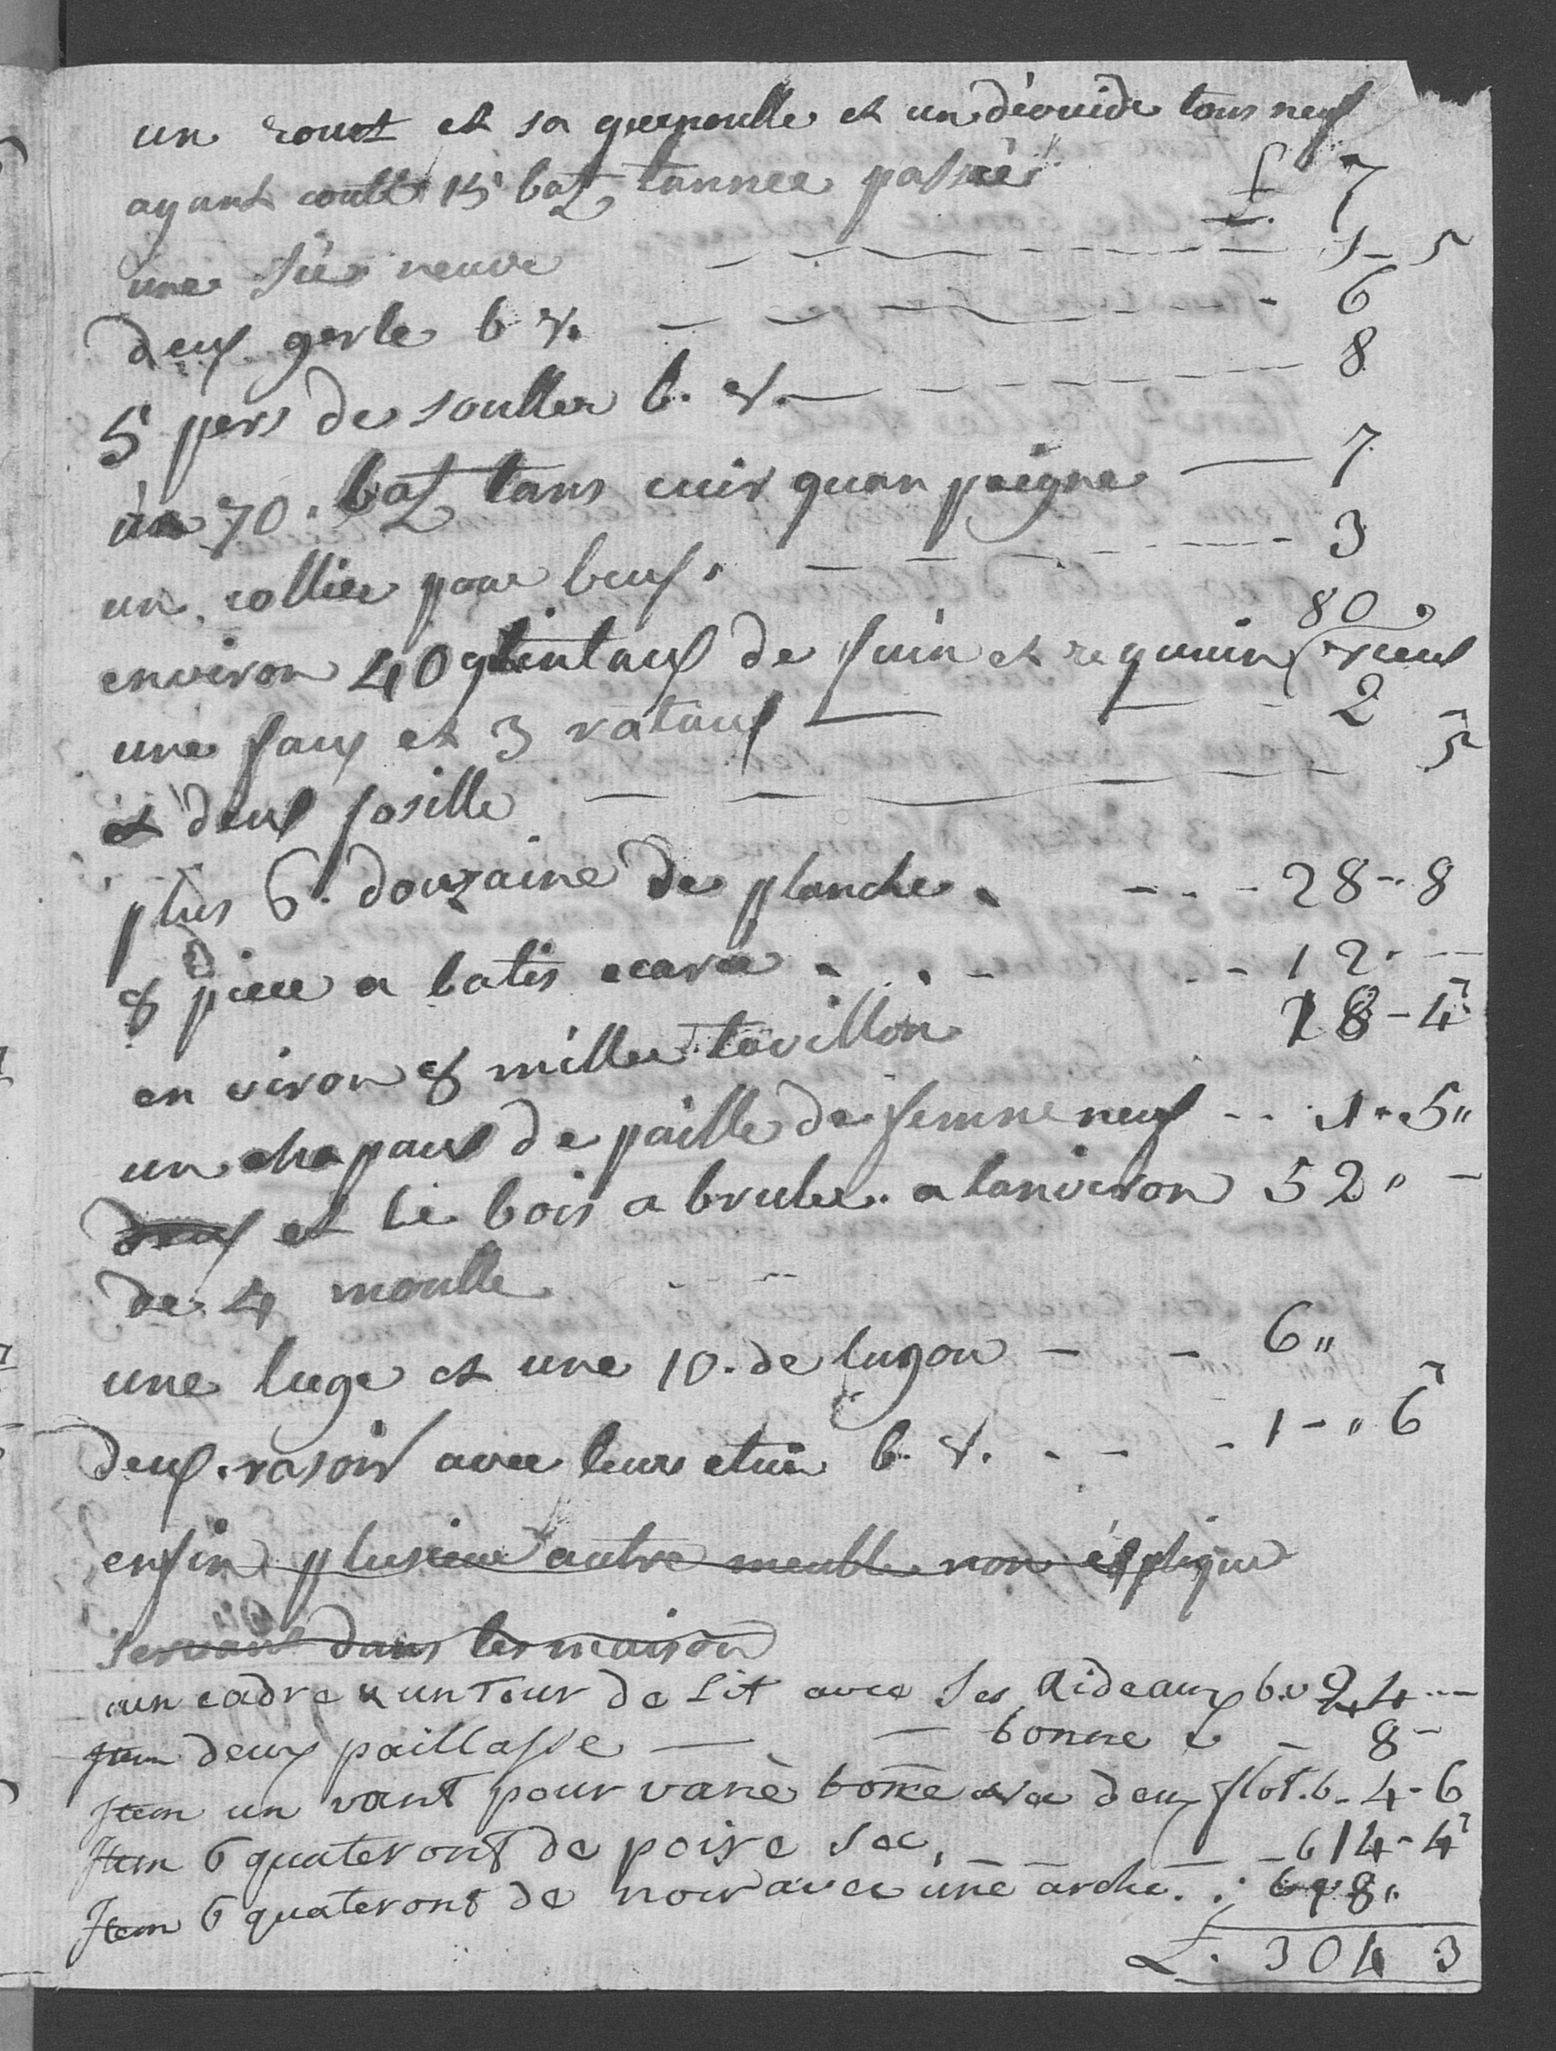 un rouet et sa quenoulle et un dévuide tous neuf
ayant coutté 15 batz lannee passée £ 7
une siè neuve 1 - 5
deux gerle b v. 6
5 pers de soullier b. v. 8
un 70. batz tans cuir quan peigne 7
un collier pour beuf. 3
80.
environ 40 quintaux de fuin et requuin vieux
une faux et 3 rataux 2
et deux fosille 5
plus 6. douzaine de planche. 28 - 8
8 piece a batir ecarée 12.
en viron 8 mille tavillon 18 - 4
un chapaux de paille de femme neuf 1 - 5 "
deux et le bois a bruler a lanviron 52 "
de 4 moulle
une luge et une 10. de lugon 6 "
deux rasoir avec leur etui b. v. 1 - " 6
enfin plusieur autre meuble non éxplique
servant dans les maison
un cadre & un Tour de Lit avec ses Rideaux b.v 24
Item deux paillasse bonne 8 -
Item un vant pour vanè bone deux flot. b. 4 - 6
Item 6 quateront de poire sec, 6 14 - 4
Item 6 quateront de noir avec une arche. 8 "
L. 304 3